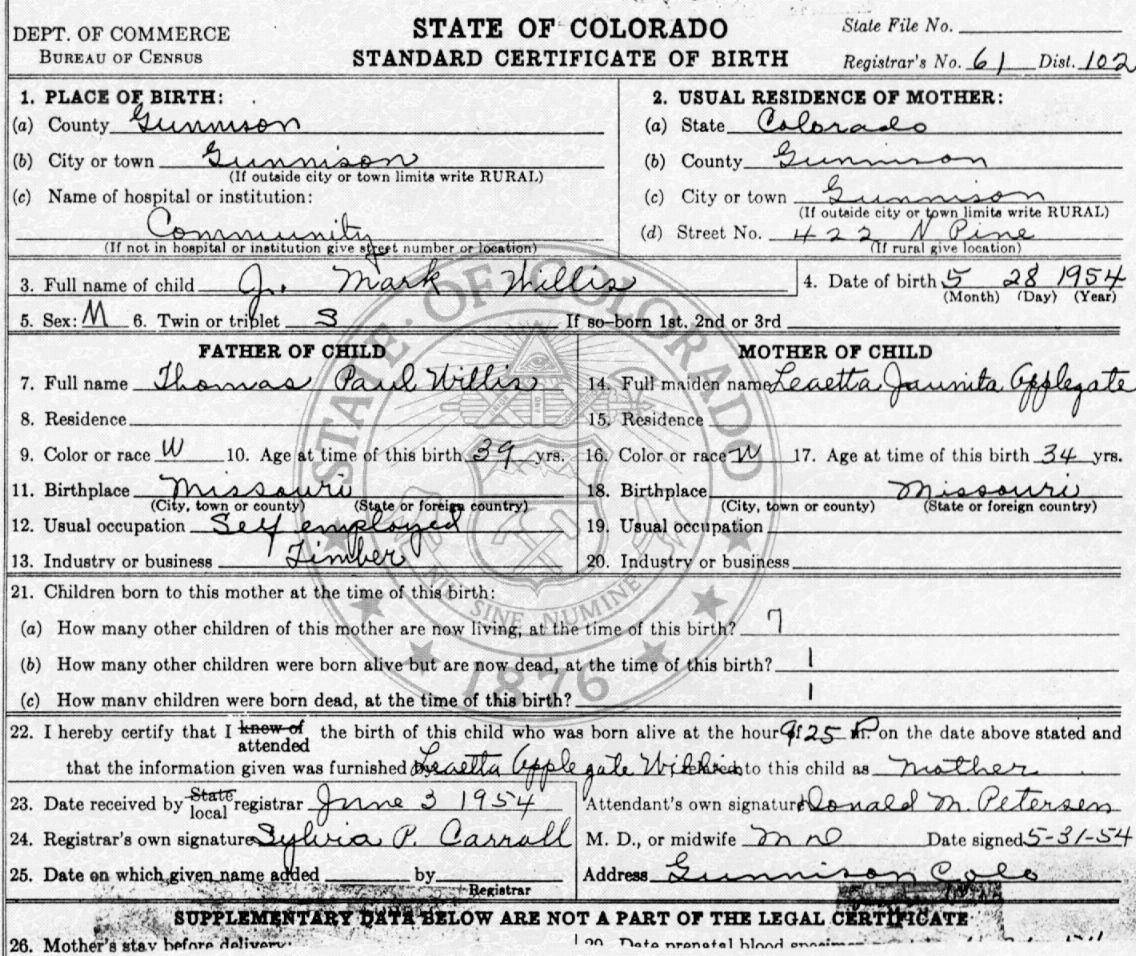 DEPT. OF COMMERCE
BUREAU OF CENSUS
STATE OF COLORADO
STANDARD CERTIFICATE OF BIRTH
State File No.
Registrar's No. 61 Dist. 102
1. PLACE OF BIRTH:
(a) County Gunnison
(b) City or town Gunnison
(If outside city or town limits write RURAL)
(c) Name of hospital or institution:
Community
(If not in hospital or institution give street number or location)
2. USUAL RESIDENCE OF MOTHER:
(a) State Colorado
(b) County Gunnison
(c) City or town Gunnison
(If outside city or town limits write RURAL)
(d) Street No. 422 N Pine
(If rural give location)
3. Full name of child J. Mark Willis
4. Date of birth 5 28 1954
(Month) (Day) (Year)
5. Sex: M 6. Twin or triplet S If so-born 1st, 2nd or 3rd
FATHER OF CHILD
7. Full name Thomas Paul Willis
8. Residence
9. Color or race W 10. Age at time of this birth 39 yrs.
11. Birthplace Missouri
(City, town or county) (State or foreign country)
12. Usual occupation Self employed
13. Industry or business Timber
MOTHER OF CHILD
14. Full maiden name Leaetta Jaunita Applegate
15. Residence
16. Color or race W 17. Age at time of this birth 34 yrs.
18. Birthplace Missouri
(City, town or county) (State or foreign country)
19. Usual occupation
20. Industry or business
21. Children born to this mother at the time of this birth:
(a) How many other children of this mother are now living, at the time of this birth? 7
(b) How many other children were born alive but are now dead, at the time of this birth? 1
(c) How many children were born dead, at the time of this birth? 1
22. I hereby certify that I know of attended the birth of this child who was born alive at the hour of 9:25 P on the date above stated and
that the information given was furnished by Leaetta Applegate Willis related to this child as Mother
23. Date received by State local registrar June 3 1954
24. Registrar's own signature Sylvia P. Carroll
25. Date on which given name added by
Registrar
Attendant's own signature Donald M. Petersen
M. D., or midwife MD Date signed 5-31-54
Address Gunnison Colo
SUPPLEMENTARY DATA BELOW ARE NOT A PART OF THE LEGAL CERTIFICATE
26. Mother's stay before delivery:
29. Date prenatal blood specimen
STATE OF COLORADO
NIL SINE NUMINE
1876